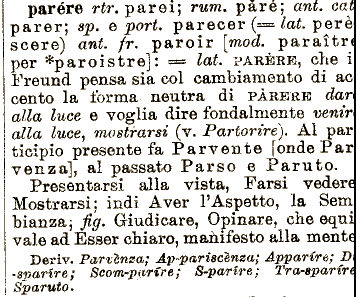 parére rtr. parei; rum. păré; ant. cat
parer; sp. e port. parecer (= lat. perè
scere) ant. fr. paroir [mod. paraître
per *paroistre]: = lat. PARÈRE, che i
Freund pensa sia col cambiamento di ac
cento la forma neutra di PÀRERE dar
alla luce e voglia dire fondalmente venir
alla luce, mostrarsi (v. Partorire). Al par
ticipio presente fa Parvente [onde Par
venza], al passato Parso e Paruto.
Presentarsi alla vista, Farsi vedere
Mostrarsi; indi Aver l'Aspetto, la Sem
bianza; fig. Giudicare, Opinare, che equi
vale ad Esser chiaro, manifesto alla mente
Deriv. Parvènza; Ap-pariscènza; Apparíre; D
-sparíre; Scom-paríre; S-paríre; Tra-sparíre
Sparuto.